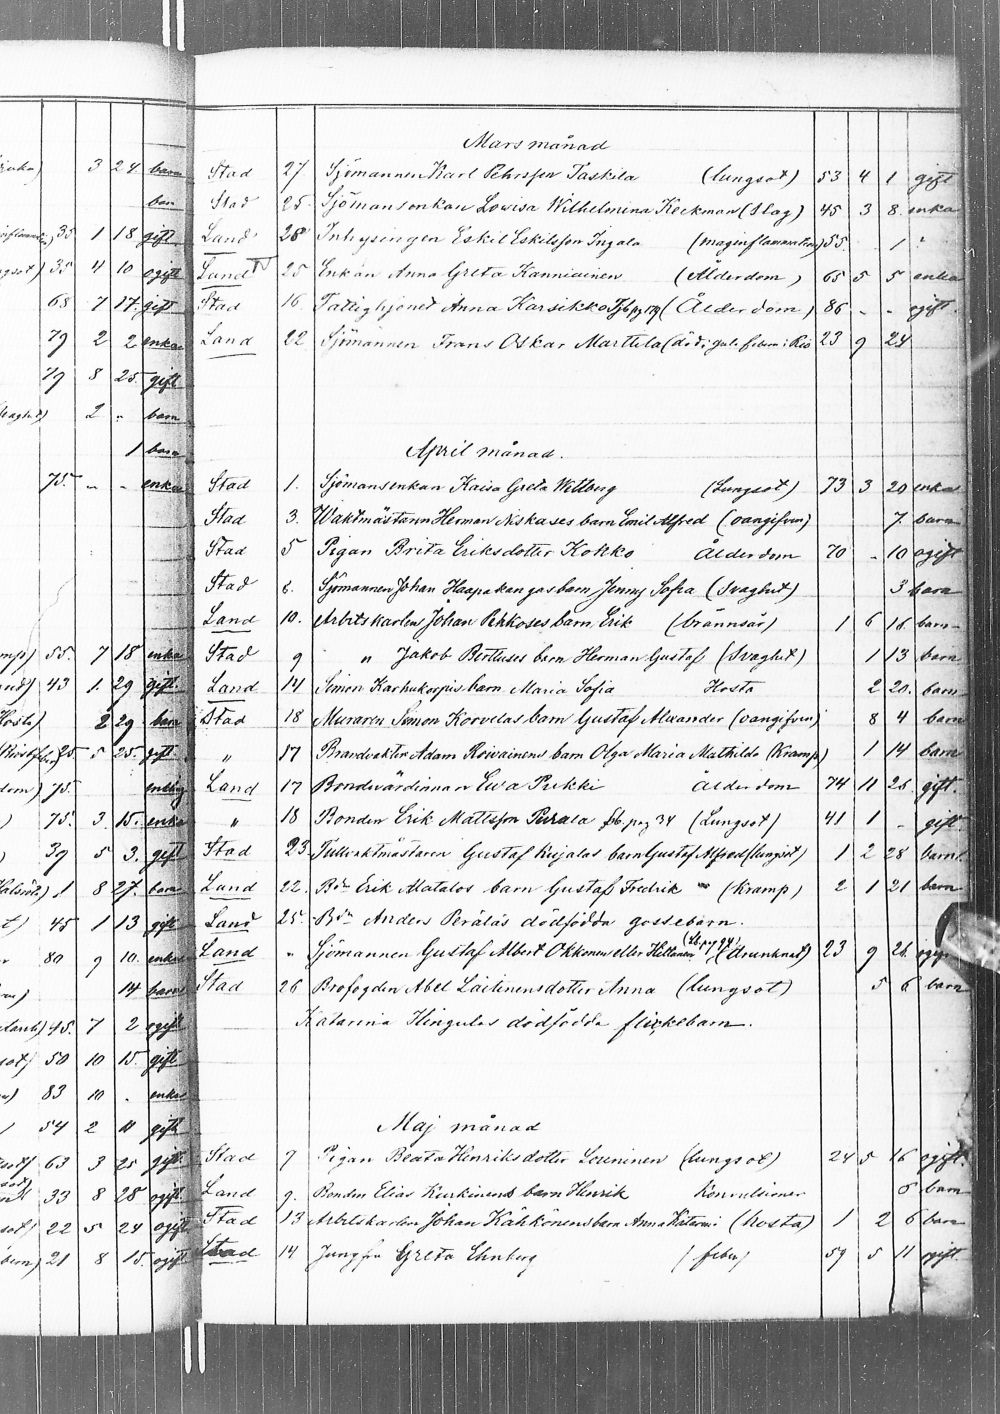 3 24 barn
barn
35. 1 18 gift
35 4 10 ogift
68 7 17. gift
79 2 2 enka
79 8 25. gift
2 " barn
1 barn
75. - - enka
55. 7 18 enka
43 1. 29 gift.
2 29 barn
25. 5 25. gift.
75.
75. 3. 15. enka
39 5 3. gift
1 8 27. barn
45 1 13 gift
80 9 10. enka
14 barn
45. 7 2 ogift
50 10 15. gift
83 10 . enka
54 2 11 gift
63 3 25 gift.
33 8 28 ogift
22 5 24 ogift
21 8 15. ogift
Mars månad
Stad 27 Sjömannen Karl Pehrsson Taskila (lungsot) 53 4 1 gift
Stad 25. Sjömansenkan Lovisa Wilhelmina Keckman (Slag) 45 3 8. enka
Land 28 Inhysingen Eskil Eskilsson Ingala (maginflammation) 55. 1 "
Land 25 Enkan Anna Greta Kanniainen (Ålderdom) 65 5 5 enka
Stad 16. Fattighjonet Anna Karsikko (Ålderdom) 86 - - ogift.
Land 22 Sjömannen Frans Oskar Marttila (död i gula febern i Rio 23 9 24
April månad.
Stad 1. Sjömansenkan Kaisa Greta Wettberg (Lungsot) 73 3 20 enka
Stad 3. Waktmästaren Herman Niskases barn Emil Alfred (oangifven) 7. barn
Stad 5 Pigan Brita Eriksdotter Kokko Ålderdom 70 - 10 ogift
Stad 6. Sjömannen Johan Haapakangas barn Jenny Sofia (Svaghet) 3 barn
Land 10. Arbetskarlen Johan Pekkoses barn Erik (brännsår) 1 6 16. barn
Stad 9 " Jakob Bertluses barn Herman Gustaf (Svaghet) 1 13 barn
Land 14 Simon Karhukorpis barn Maria Sofia Hosta 2 20. barn
Stad 18 Muraren Simon Korvelas barn Gustaf Alexander (oangifven) 8 4 barn
" 17 Brandvakten Adam Roivainens barn Olga Maria Mathilda (Kramp) 1 14 barn
Land 17 Bondevärdinnan Ewa Pukki Ålderdom 74 11 26. gift.
" 18 Bonden Erik Mattsson Perala fb. pag 34 (Lungsot) 41 1 - gift.
Stad 23 Tullvaktmästaren Gustaf Kujalas barn Gustaf Alfred (lungsot) 1 2 28 barn
Land 22. Bdn Erik Matalos barn Gustaf Fredrik (Kramp) 2 1 21 barn
Land 25. Bdn Anders Peräläs dödfödda gossebarn.
Land " Sjömannen Gustaf Albert Okkonen eller Hiltanen (drunknat) 23 9 26. ogift
Stad 26 Brofogden Abel Laitinens dotter Anna (lungsot) 5 6 barn
Katarina Hingulas dödfödda flickebarn.
Maj månad
Stad 7 Pigan Beata Henriksdotter Leuninen (lungsot) 24 5 16 ogift.
Land 9. Bonden Elias Keukinens barn Henrik Konvulsioner 8 barn
Stad 13 Arbetskarlen Johan Kähkönens barn Anna Katarina (hosta) 1 2 6 barn
Stad 14 Jungfru Greta Ehnberg (feber) 59 5 11 ogift.